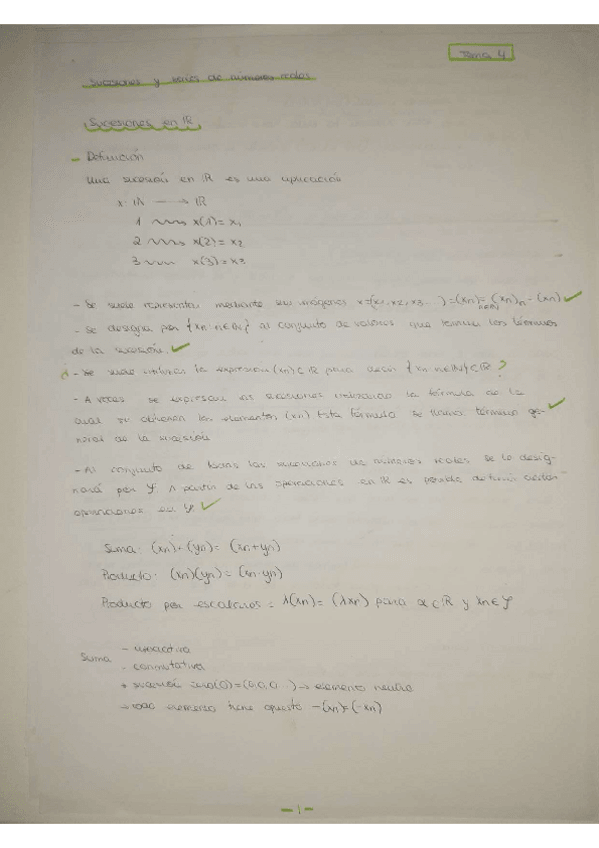 Tema 4
Sucesiones y series de números reales
Sucesiones en ℝ
- Definición
Una sucesión en ℝ es una aplicación
x: ℕ → ℝ
1 ⇝ x(1) = x₁
2 ⇝ x(2) = x₂
3 ⇝ x(3) = x₃
- Se suele representar mediante sus imágenes x=(x1, x2, x3, ...) = (xn)n∈ℕ = (xn)n = (xn) ✓
- Se designa por {xn: n∈ℕ} al conjunto de valores que toman los términos
de la sucesión. ✓
- Se suele utilizar la expresión (xn)⊂ℝ para decir {xn: n∈ℕ}⊂ℝ ?
- A veces se expresan las sucesiones utilizando la fórmula de la
cual se obtienen los elementos (xn). Esta fórmula se llama término ge- ✓
neral de la sucesión
- Al conjunto de todas las sucesiones de números reales se lo desig-
nará por 𝒮. A partir de las operaciones en ℝ es posible definir ciertas
operaciones en 𝒮. ✓
Suma: (xn)+(yn) = (xn+yn)
Producto: (xn)(yn) = (xn·yn)
Producto por escalares = λ(xn) = (λxn) para α∈ℝ y xn∈𝒮
Suma
- asociativa
- conmutativa
+ sucesión cero(0)=(0,0,0...) → elemento neutro
→ todo elemento tiene opuesto -(xn)=(-xn)
- 1 -